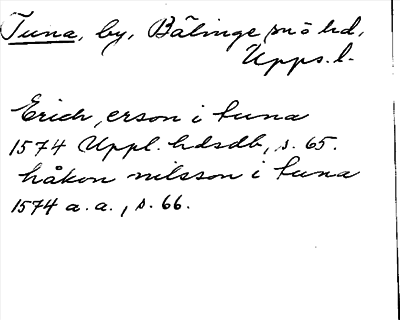 Tuna, by, Bälinge sn o hd,
Upps. l.
Erich, erson i tuna
1574 Uppl. hdsdb, s. 65.
håkon nilsson i tuna
1574 a. a., s. 66.